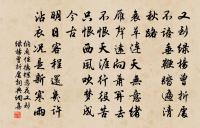 又到綠楊曾折處
不語垂鞭踏遍清
秋路
衰草連天無意緒
雁聲遠向蕭關去
不恨天涯行役苦
只恨西風吹夢成
今古
明日客程還幾許
沾衣況是新寒雨
納蘭性德蝶戀花又到
綠楊曾折處